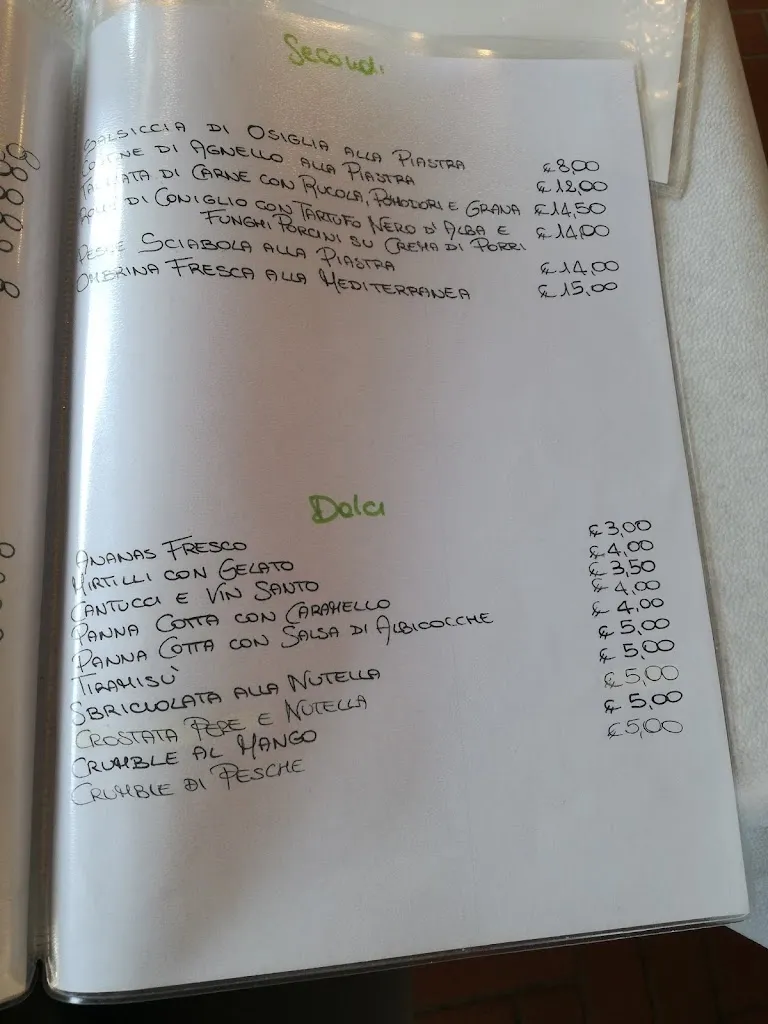 Secondi
SALSICCIA DI OSIGLIA ALLA PIASTRA €8,00
COSTINE DI AGNELLO ALLA PIASTRA €12,00
TAGLIATA DI CARNE CON RUCOLA, POMODORI E GRANA €14,50
DI CONIGLIO CON TARTUFO NERO D'ALBA E €14,00
FUNGHI PORCINI SU CREMA DI PORRI
PESCE SCIABOLA ALLA PIASTRA €14,00
OMBRINA FRESCA ALLA MEDITERRANEA €15,00
Dolci
ANANAS FRESCO €3,00
MIRTILLI CON GELATO €4,00
CANTUCCI E VIN SANTO €3,50
PANNA COTTA CON CARAMELLO €4,00
PANNA COTTA CON SALSA DI ALBICOCCHE €4,00
TIRAMISÙ €5,00
SBRICIOLATA ALLA NUTELLA €5,00
CROSTATA PERE E NUTELLA €5,00
CRUMBLE AL MANGO €5,00
CRUMBLE DI PESCHE €5,00